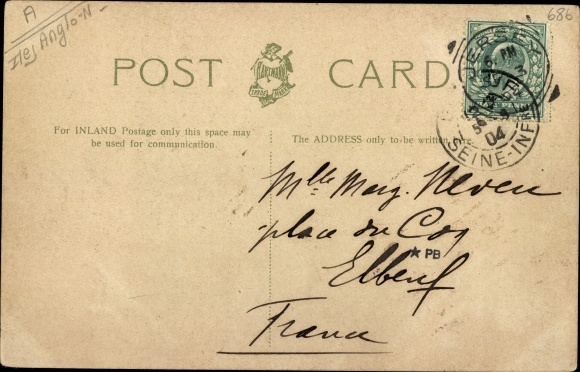 A
Iles Anglo-N-
686
POST CARD
HARTMANN
TRADE MARK
JERSEY
PM
04
SEINE-INFRE
For INLAND Postage only this space may
be used for communication.
The ADDRESS only to be written here.
Mlle Marg. Neveu
place du Coq
★ PB
Elbeuf
France